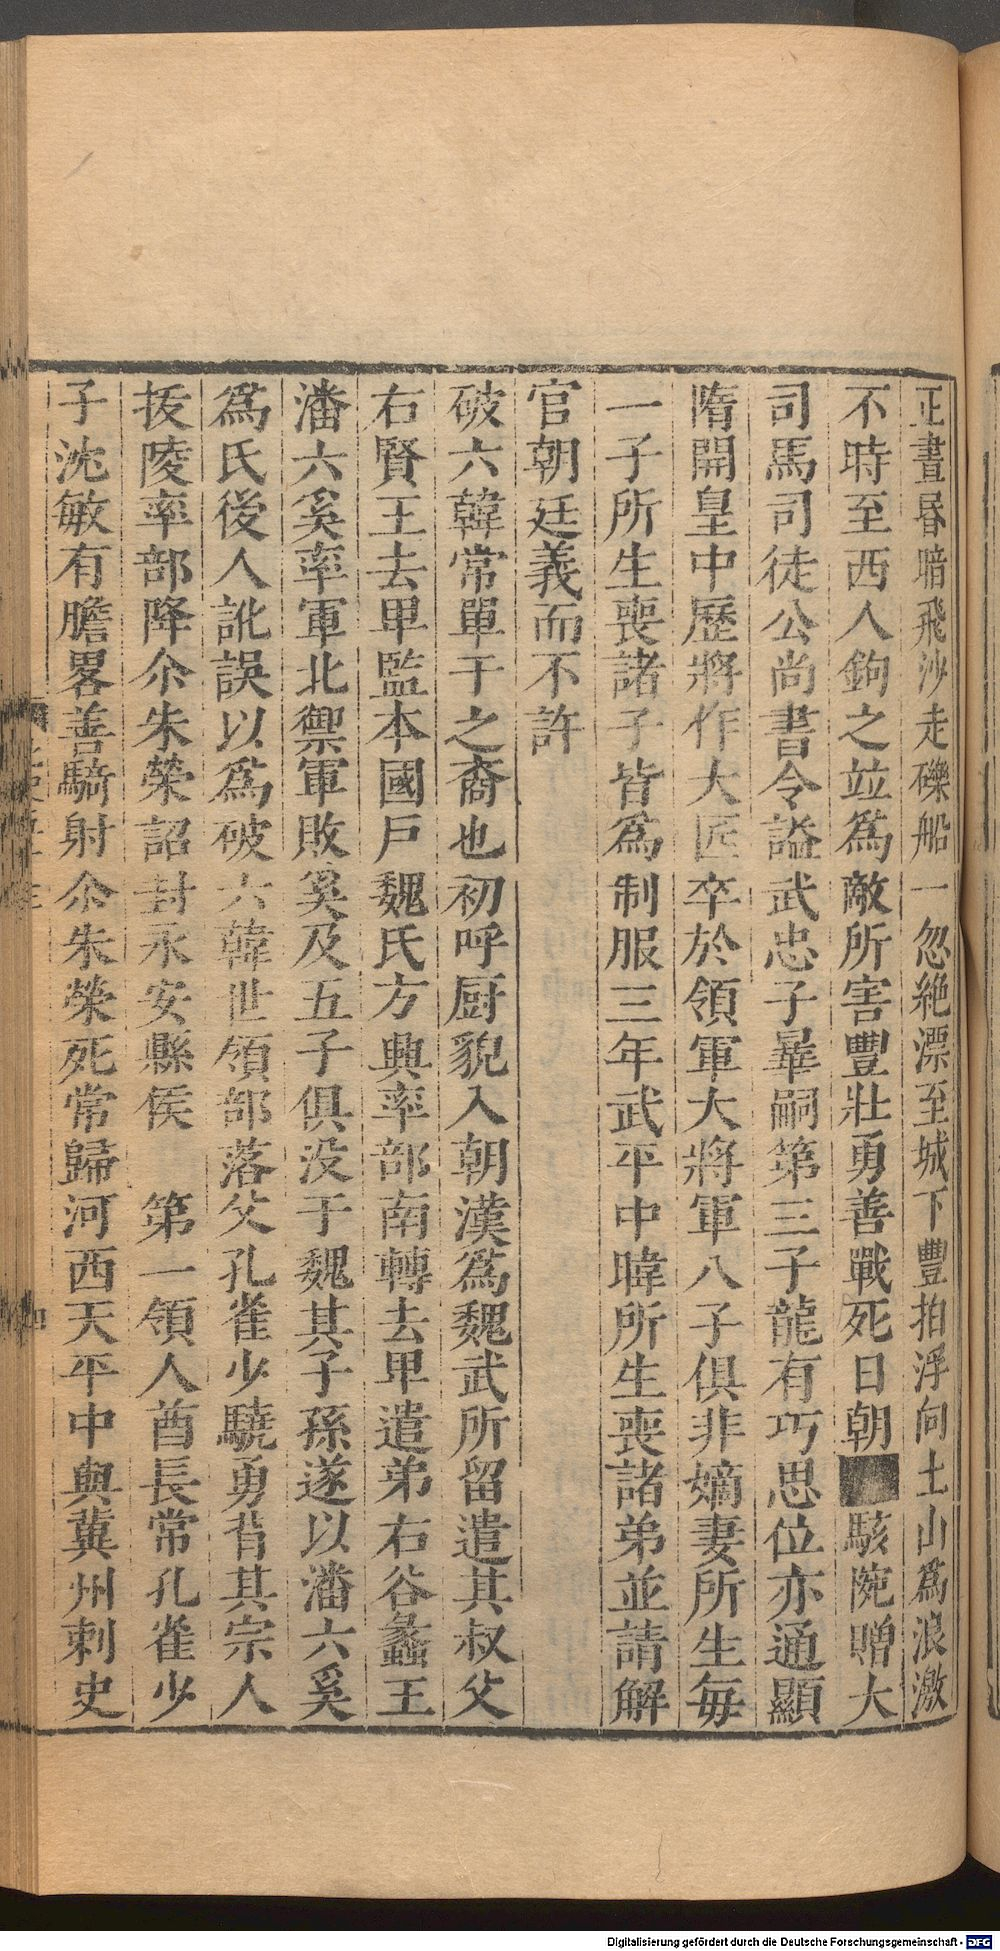 正晝昬暗飛沙走礫船一忽絶漂至城下豐拍浮向土山爲浪激
不時至西人鉤之竝爲敵所害豐壯勇善戰死日朝駭惋贈大
司馬司徒公尚書令謚武忠子㬪嗣第三子龍有巧思位亦通顯
隋開皇中歷將作大匠卒於領軍大將軍八子俱非嫡妻所生每
一子所生喪諸子皆爲制服三年武平中暐所生喪諸弟並請解
官朝廷義而不許
破六韓常單于之裔也初呼厨貌入朝漢爲魏武所留遣其叔父
右賢王去卑監本國戶魏氏方興率部南轉去卑遣弟右谷蠡王
潘六奚率軍北禦軍敗奚及五子俱没于魏其子孫遂以潘六奚
爲氏後人訛誤以爲破六韓世領部落父孔雀少驍勇背其宗人
拔陵率部降尒朱榮詔封永安縣侯 第一領人酋長常孔雀少
子沈敏有膽畧善騎射尒朱榮死常歸河西天平中與冀州刺史
Digitalisierung gefördert durch die Deutsche Forschungsgemeinschaft - DFG